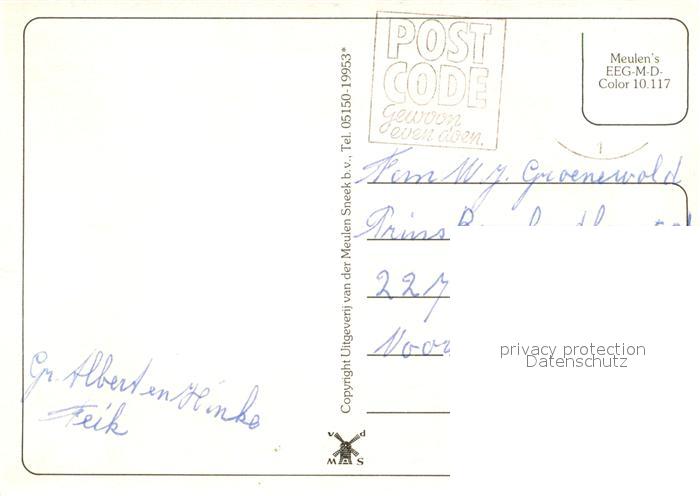 POST
CODE
gewoon
even doen.
Meulen's
EEG-M-D-
Color 10.117
Copyright Uitgeverij van der Meulen Sneek b.v., Tel. 05150-19953*
Fam W.J. Groenewold
Prins
227
Voor
privacy protection
Datenschutz
Gr. Albert en Hinke
Feik
v d
M S